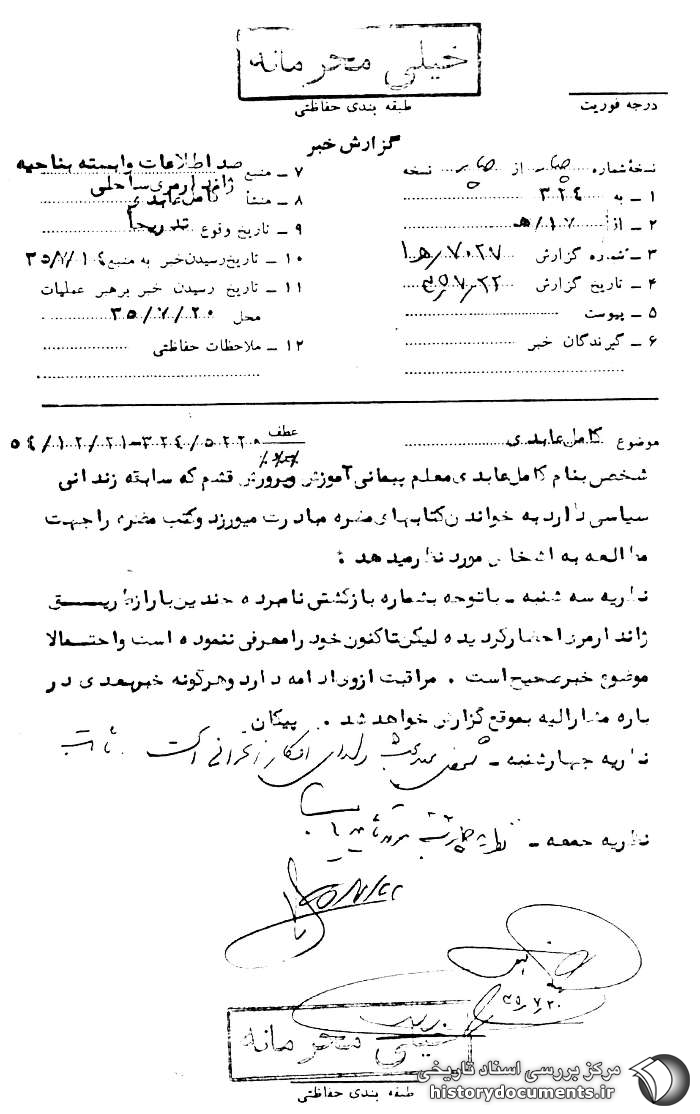 خیلی محرمانه
طبقه بندی حفاظتی
درجه فوریت
گزارش خبر
نسخهٔ شماره چهار از چهار نسخه
۱ ـ به ۳۲۴
۲ ـ از ۱۷/ه
۳ ـ شماره گزارش ۷۰۲۷/ه۱
۴ ـ تاریخ گزارش ۳۵/۷/۲۲
۵ ـ پیوست
۶ ـ گیرندگان خبر
۷ ـ منبع ضد اطلاعات وابسته بناحیه ژاندارمری ساحلی
۸ ـ منشأ کامل عابدی
۹ ـ تاریخ وقوع تدریجا
۱۰ ـ تاریخ رسیدن خبر به منبع ۳۵/۷/۱۴
۱۱ ـ تاریخ رسیدن خبر برهبر عملیات
محل ۳۵/۷/۲۰
۱۲ ـ ملاحظات حفاظتی
موضوع کامل عابدی
عطف ۵۲۲۰/۳۲۴-۵۴/۱۲/۲۱
شخصی بنام کامل عابدی معلم پیمانی آموزش وپرورش قشم که سابقه زندانی
سیاسی دارد به خواندن کتابهای مضره مبادرت میورزد وکتب مضره را جهت
مطالعه به اشخاص مورد نظر میدهد .
نظریه سه شنبه ـ باتوجه بشماره بازگشتی نامبرده چندین بار از طریق
ژاندارمری احضار گردیده لیکن تاکنون خود را معرفی ننموده است واحتمالا
موضوع خبر صحیح است . مراقبت ازوی ادامه دارد وهرگونه خبر بعدی در
باره مشارالیه بموقع گزارش خواهد شد . پیکان
نظریه چهارشنبه ـ
نظریه جمعه ـ نظریه چهارشنبه مورد تایید است
۳۵/۷/۲۲
۳۵/۷/۲۰
خیلی محرمانه
طبقه بندی حفاظتی
مرکز بررسی اسناد تاریخی
historydocuments.ir